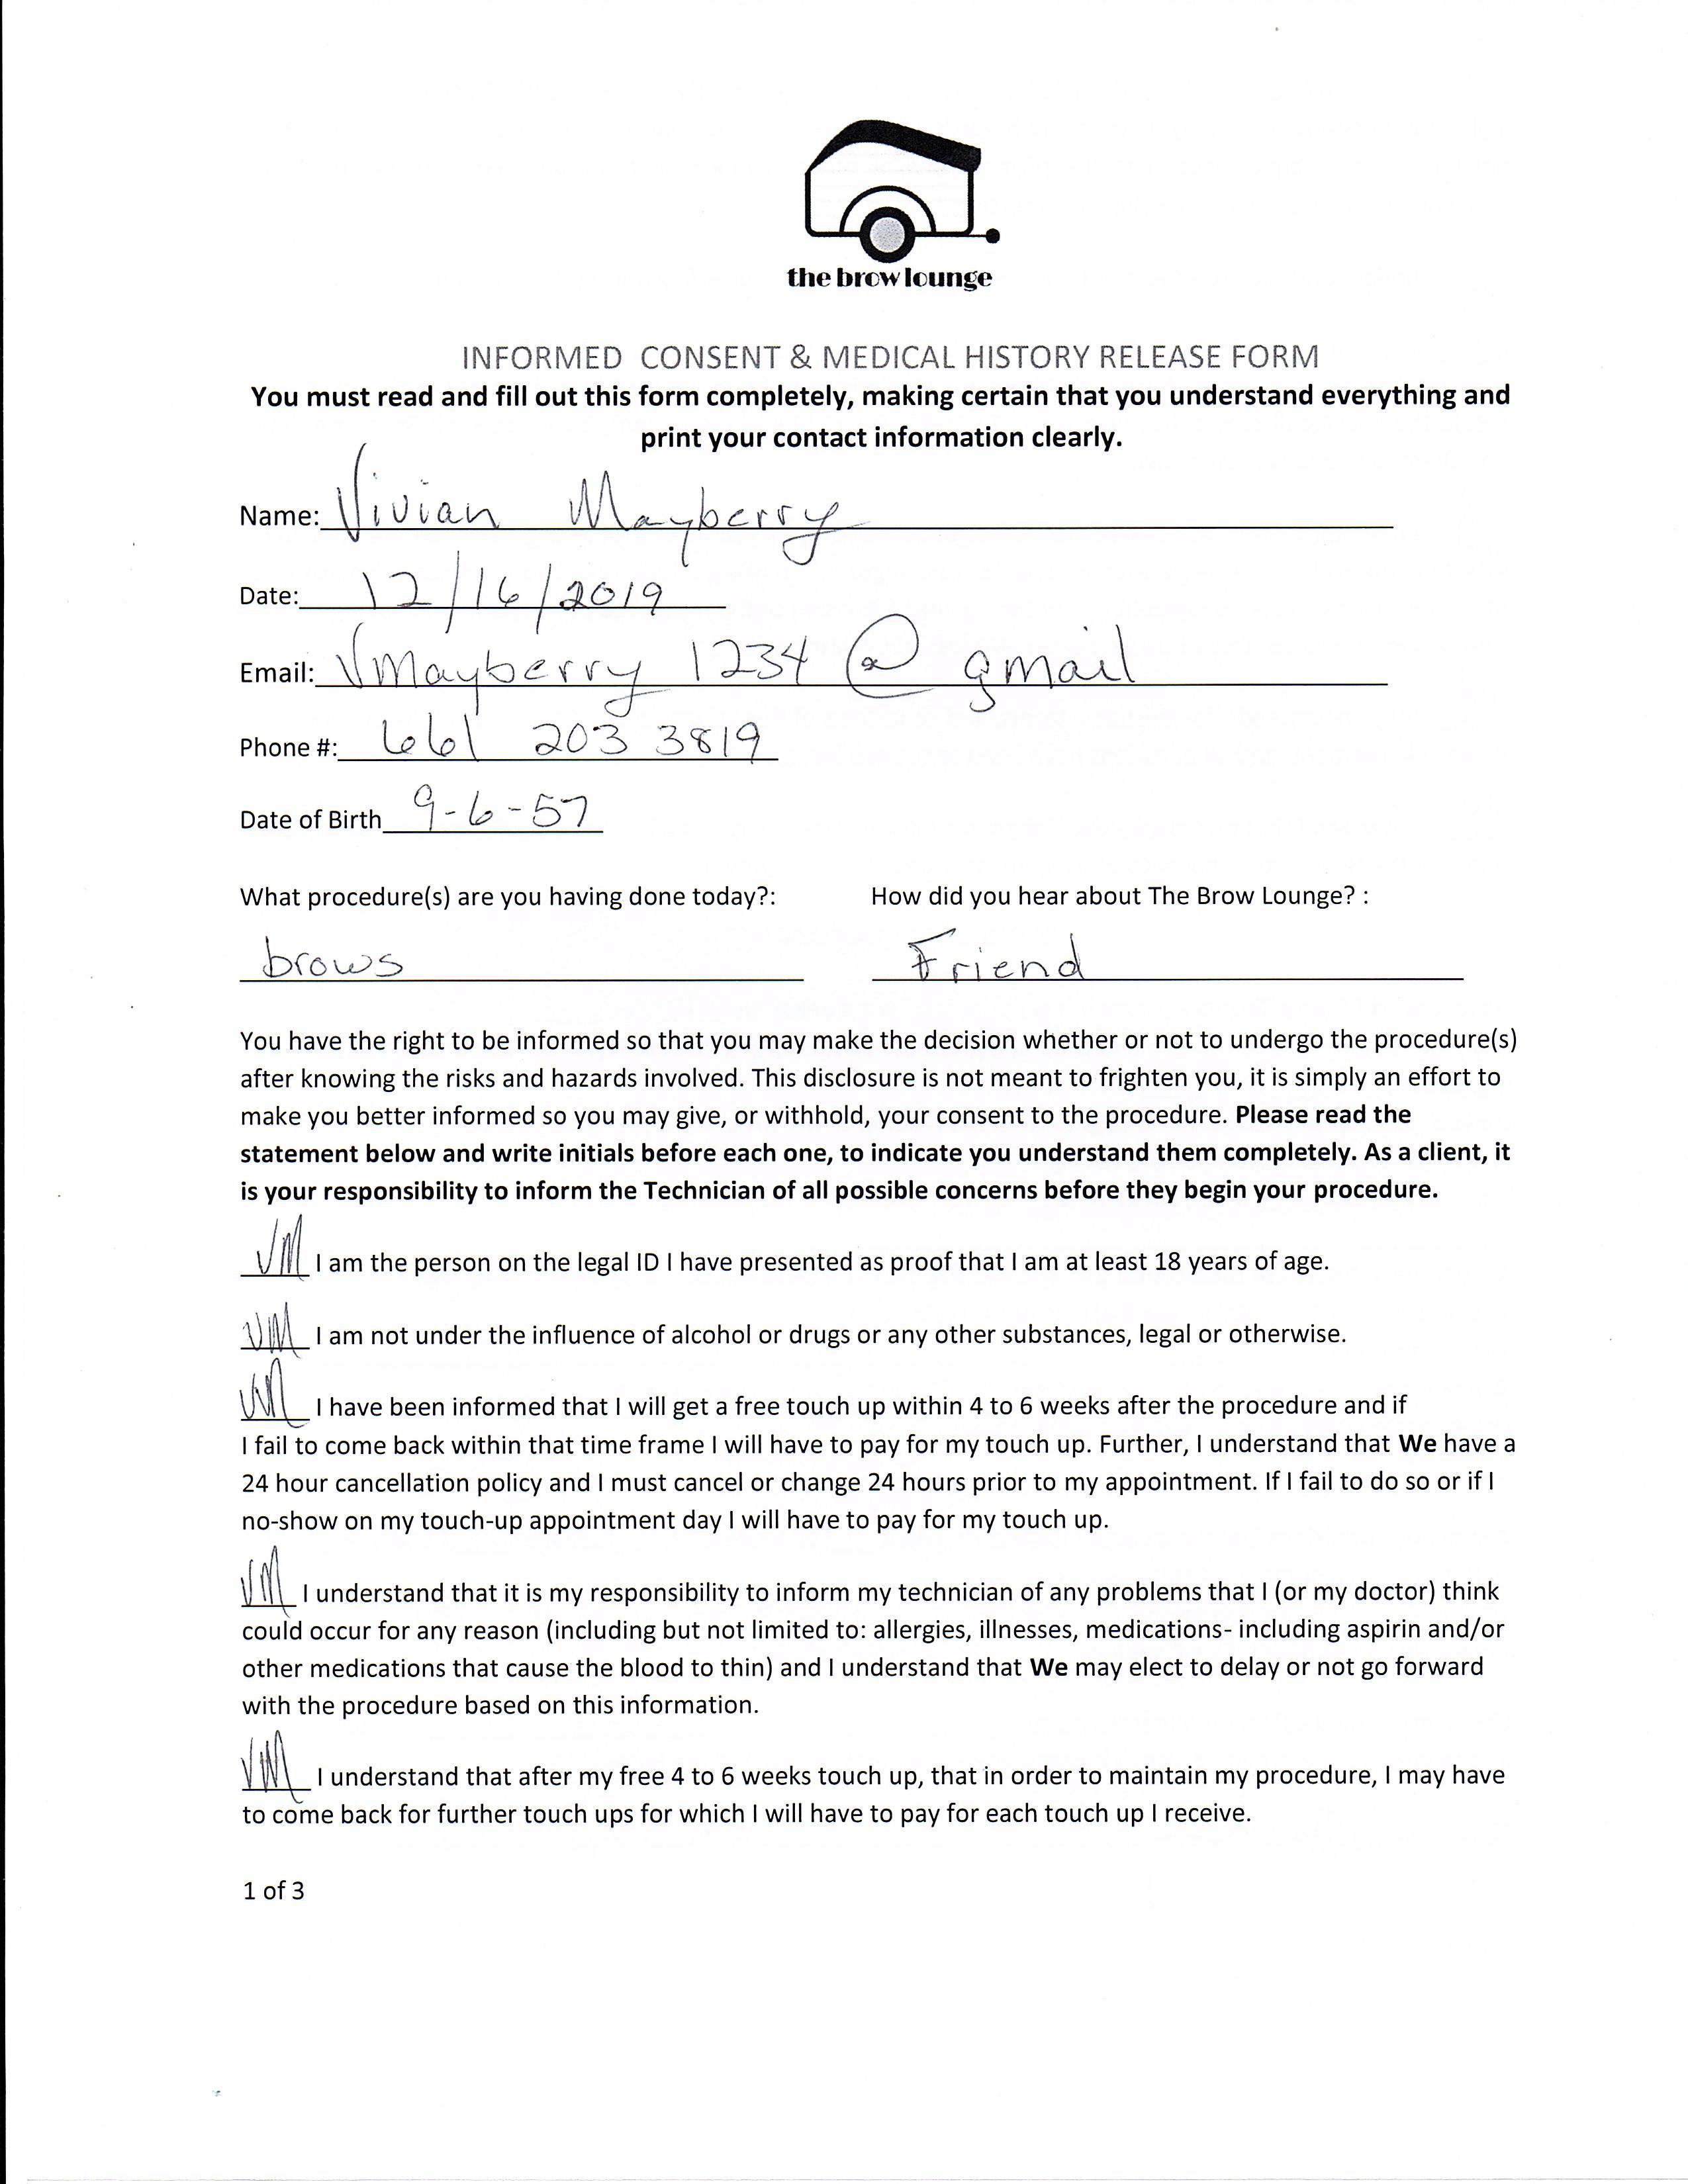 the brow lounge
INFORMED CONSENT & MEDICAL HISTORY RELEASE FORM
You must read and fill out this form completely, making certain that you understand everything and
print your contact information clearly.
Name: Vivian Mayberry
Date: 12/16/2019
Email: Vmayberry 1234 @ gmail
Phone #: 661 203 3819
Date of Birth 9-6-57
What procedure(s) are you having done today?: How did you hear about The Brow Lounge? :
brows Friend
You have the right to be informed so that you may make the decision whether or not to undergo the procedure(s)
after knowing the risks and hazards involved. This disclosure is not meant to frighten you, it is simply an effort to
make you better informed so you may give, or withhold, your consent to the procedure. Please read the
statement below and write initials before each one, to indicate you understand them completely. As a client, it
is your responsibility to inform the Technician of all possible concerns before they begin your procedure.
VM I am the person on the legal ID I have presented as proof that I am at least 18 years of age.
VM I am not under the influence of alcohol or drugs or any other substances, legal or otherwise.
VM I have been informed that I will get a free touch up within 4 to 6 weeks after the procedure and if
I fail to come back within that time frame I will have to pay for my touch up. Further, I understand that We have a
24 hour cancellation policy and I must cancel or change 24 hours prior to my appointment. If I fail to do so or if I
no-show on my touch-up appointment day I will have to pay for my touch up.
VM I understand that it is my responsibility to inform my technician of any problems that I (or my doctor) think
could occur for any reason (including but not limited to: allergies, illnesses, medications- including aspirin and/or
other medications that cause the blood to thin) and I understand that We may elect to delay or not go forward
with the procedure based on this information.
VM I understand that after my free 4 to 6 weeks touch up, that in order to maintain my procedure, I may have
to come back for further touch ups for which I will have to pay for each touch up I receive.
1 of 3